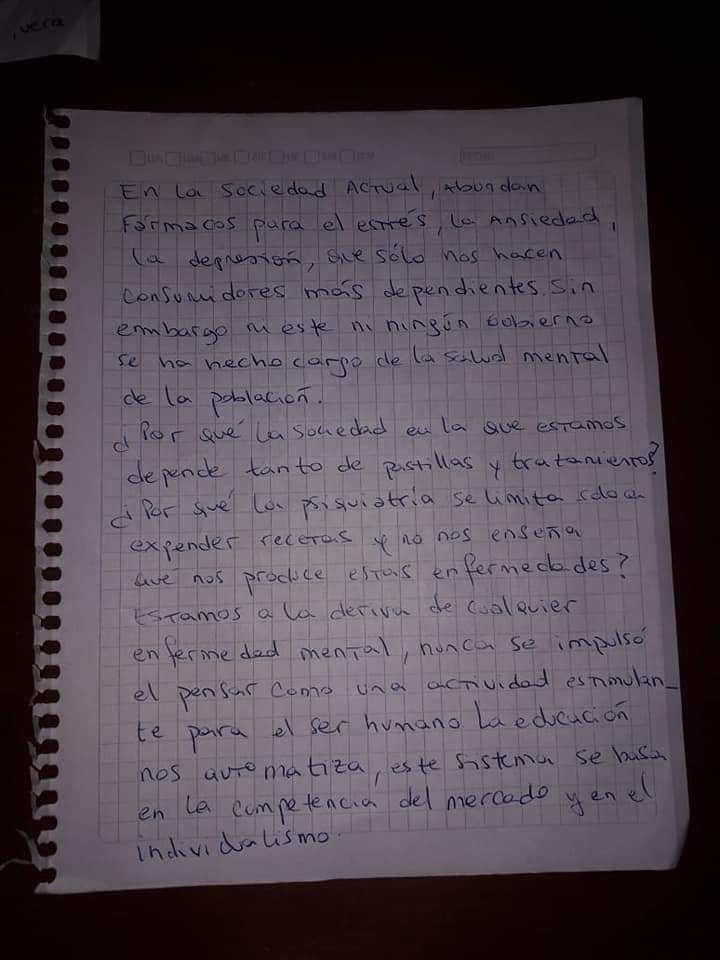 , vera
En la sociedad actual, abundan
Fármacos para el estrés, la ansiedad,
la depresión, que sólo nos hacen
consumidores más dependientes. Sin
embargo ni este ni ningún gobierno
se ha hecho cargo de la salud mental
de la población.
¿Por qué la sociedad en la que estamos
depende tanto de pastillas y tratamientos?
¿Por qué la psiquiatría se limita sólo a
expender recetas y no nos enseña
que nos produce estas enfermedades?
Estamos a la deriva de cualquier
enfermedad mental, nunca se impulsó
el pensar como una actividad estimulan_
te para el ser humano. La educación
nos automatiza, este sistema se basa
en la competencia del mercado y en el
individualismo.